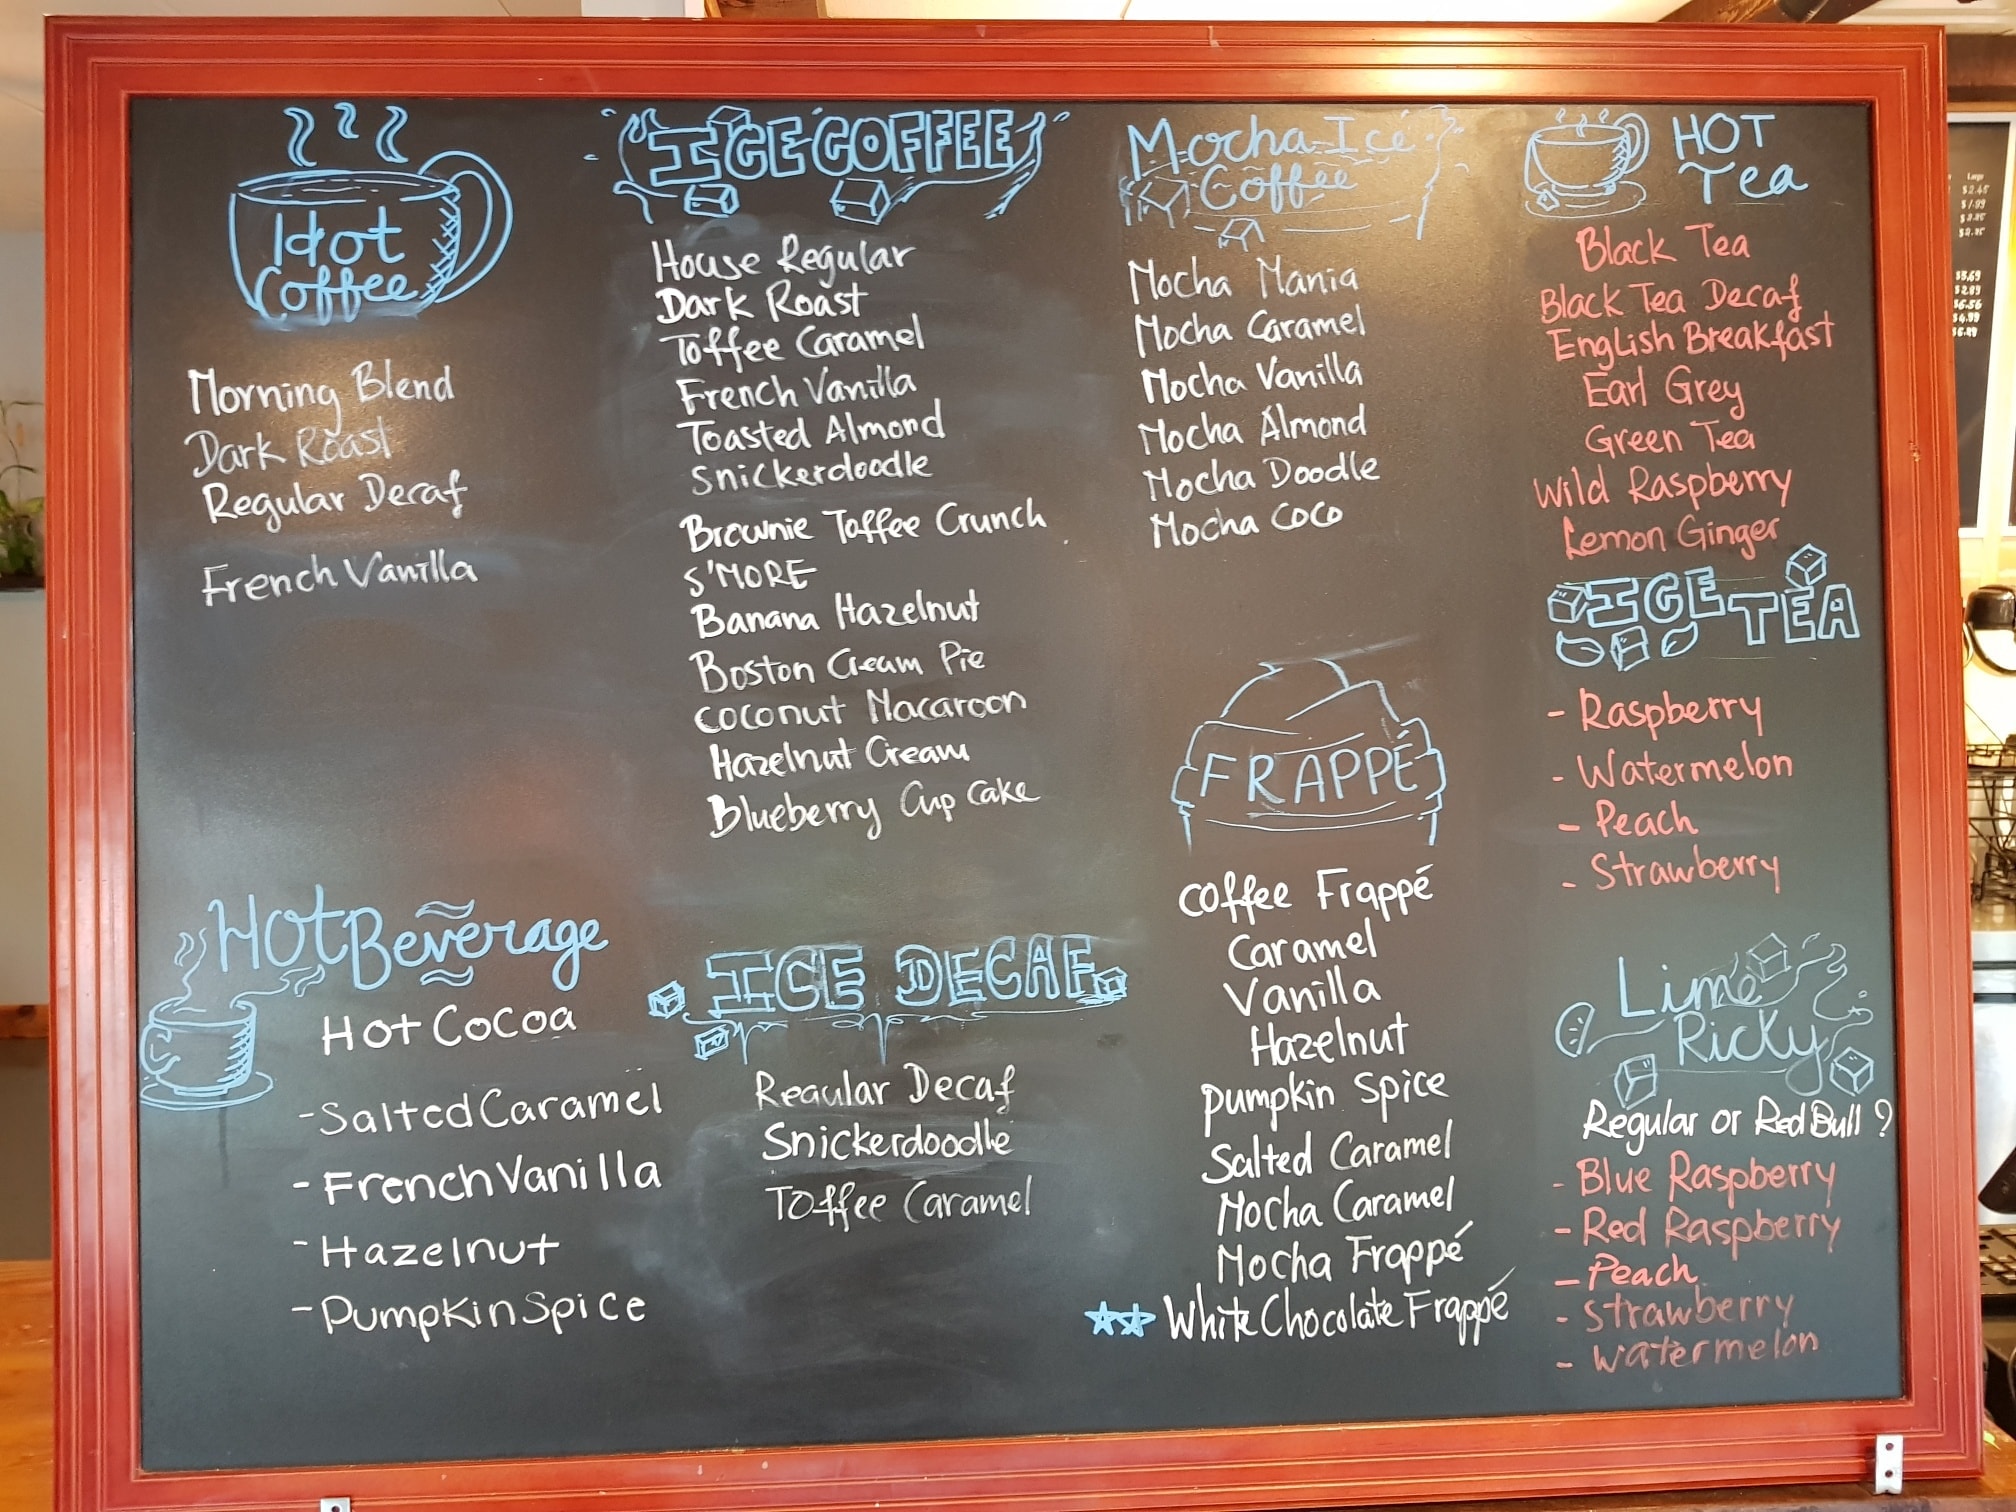 Hot
Coffee
Morning Blend
Dark Roast
Regular Decaf
French Vanilla
Hot Beverage
Hot Cocoa
- Salted Caramel
- French Vanilla
- Hazelnut
- Pumpkin Spice
ICE COFFEE
House Regular
Dark Roast
Toffee Caramel
French Vanilla
Toasted Almond
Snickerdoodle
Brownie Toffee Crunch
S'MORE
Banana Hazelnut
Boston Cream Pie
Coconut Macaroon
Hazelnut Cream
Blueberry Cup Cake
ICE DECAF
Regular Decaf
Snickerdoodle
Toffee Caramel
Mocha Ice
Coffee
Mocha Mania
Mocha Caramel
Mocha Vanilla
Mocha Almond
Mocha Doodle
Mocha Coco
FRAPPÉ
Coffee Frappé
Caramel
Vanilla
Hazelnut
Pumpkin Spice
Salted Caramel
Mocha Caramel
Mocha Frappé
White Chocolate Frappé
HOT
Tea
Black Tea
Black Tea Decaf
English Breakfast
Earl Grey
Green Tea
Wild Raspberry
Lemon Ginger
ICE TEA
- Raspberry
- Watermelon
- Peach
- Strawberry
Lime
Ricky
Regular or Red Bull ?
- Blue Raspberry
- Red Raspberry
- Peach
- Strawberry
- Watermelon
Large